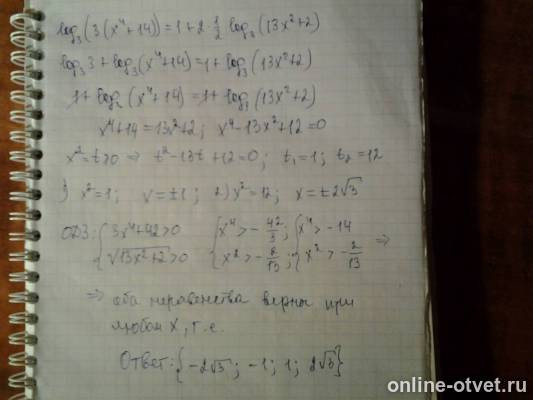 log₃(3(x⁴+14)) = 1+2·½ log₃(13x²+2)
log₃3 + log₃(x⁴+14) = 1+log₃(13x²+2)
1+log₃(x⁴+14) = 1+log₃(13x²+2)
x⁴+14 = 13x²+2; x⁴-13x²+12=0
x²=t>0 ⇒ t²-13t+12=0; t₁=1; t₂=12
1) x²=1; x=±1; 2) x²=12; x=±2√3
ОДЗ: { 3x⁴+42>0 { x⁴>-42/3; { x⁴>-14
√13x²+2>0 x²>-2/13; x²>-2/13 ⇒
⇒ оба неравенства верны при
любом x, т.е.
Ответ: {-2√3; -1; 1; 2√3}
online-otvet.ru